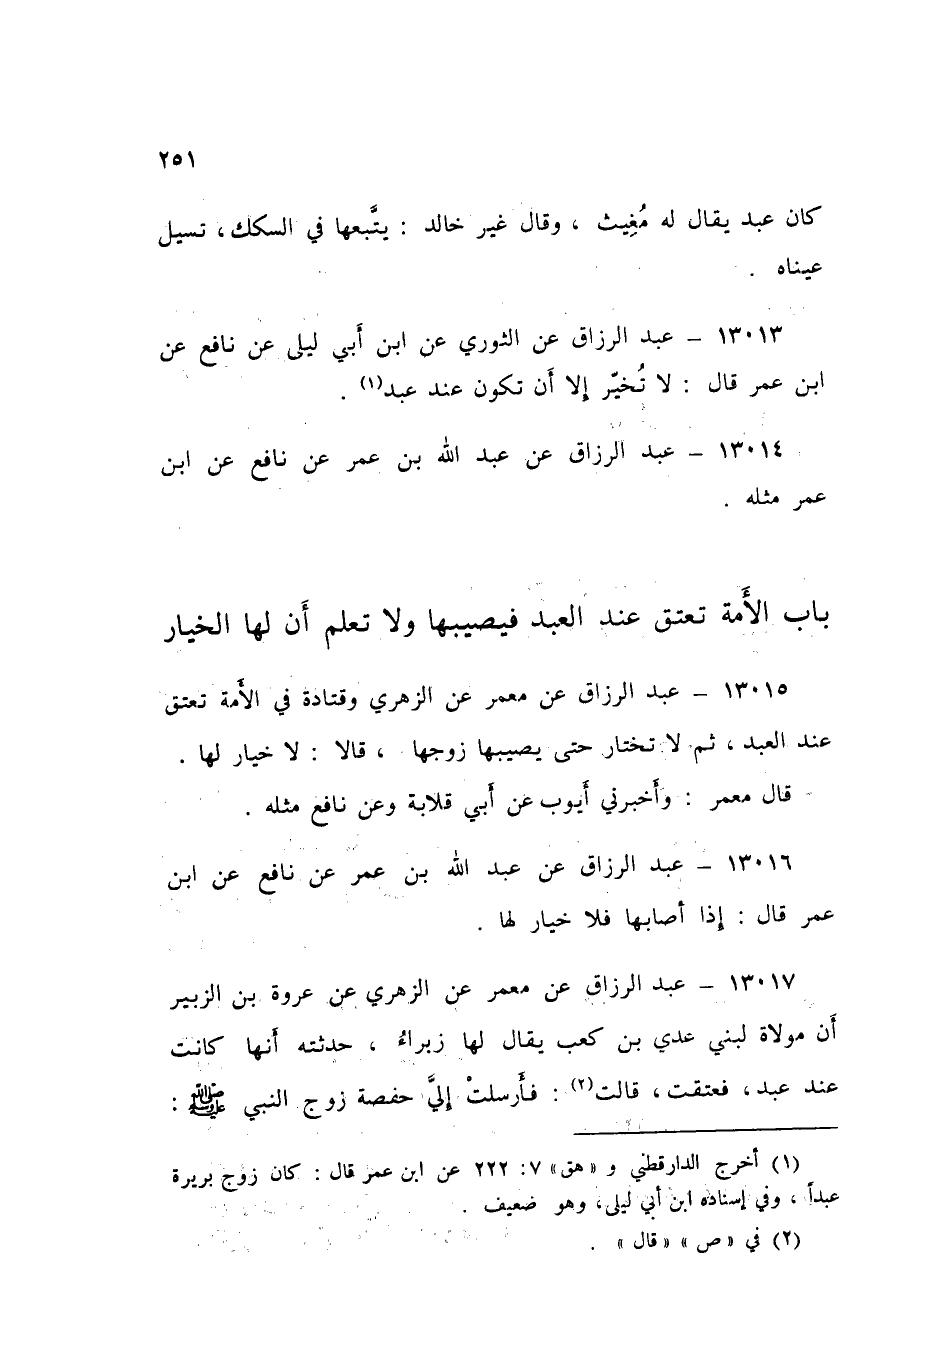 ٢٥١
كان عبد يقال له مُغِيث ، وقال غير خالد : يتَّبعها في السكك ، تسيل
عيناه .
١٣٠١٣ – عبد الرزاق عن الثوري عن ابن أَبي ليلى عن نافع عن
ابن عمر قال : لا تُخيّر إلا أَن تكون عند عبد(١) .
١٣٠١٤ – عبد الرزاق عن عبد الله بن عمر عن نافع عن ابن
عمر مثله .
باب الأَمة تعتق عند العبد فيصيبها ولا تعلم أَن لها الخيار
١٣٠١٥ – عبد الرزاق عن معمر عن الزهري وقتادة في الأَمة تعتق
عند العبد ، ثم لا تختار حتى يصيبها زوجها ، قالا : لا خيار لها .
قال معمر : وأَخبرني أَيوب عن أَبي قلابة وعن نافع مثله .
١٣٠١٦ – عبد الرزاق عن عبد الله بن عمر عن نافع عن ابن
عمر قال : إذا أصابها فلا خيار لها .
١٣٠١٧ – عبد الرزاق عن معمر عن الزهري عن عروة بن الزبير
أَن مولاة لبني عدي بن كعب يقال لها زبراءُ ، حدثته أَنها كانت
عند عبد ، فعتقت ، قالت(٢) : فأَرسلتْ إليَّ حفصة زوج النبي ﷺ :
(١) أخرج الدارقطني و «هق» ٧: ٢٢٢ عن ابن عمر قال : كان زوج بريرة
عبداً ، وفي إسناده ابن أبي ليلى، وهو ضعيف .
(٢) في «ص» «قال» .